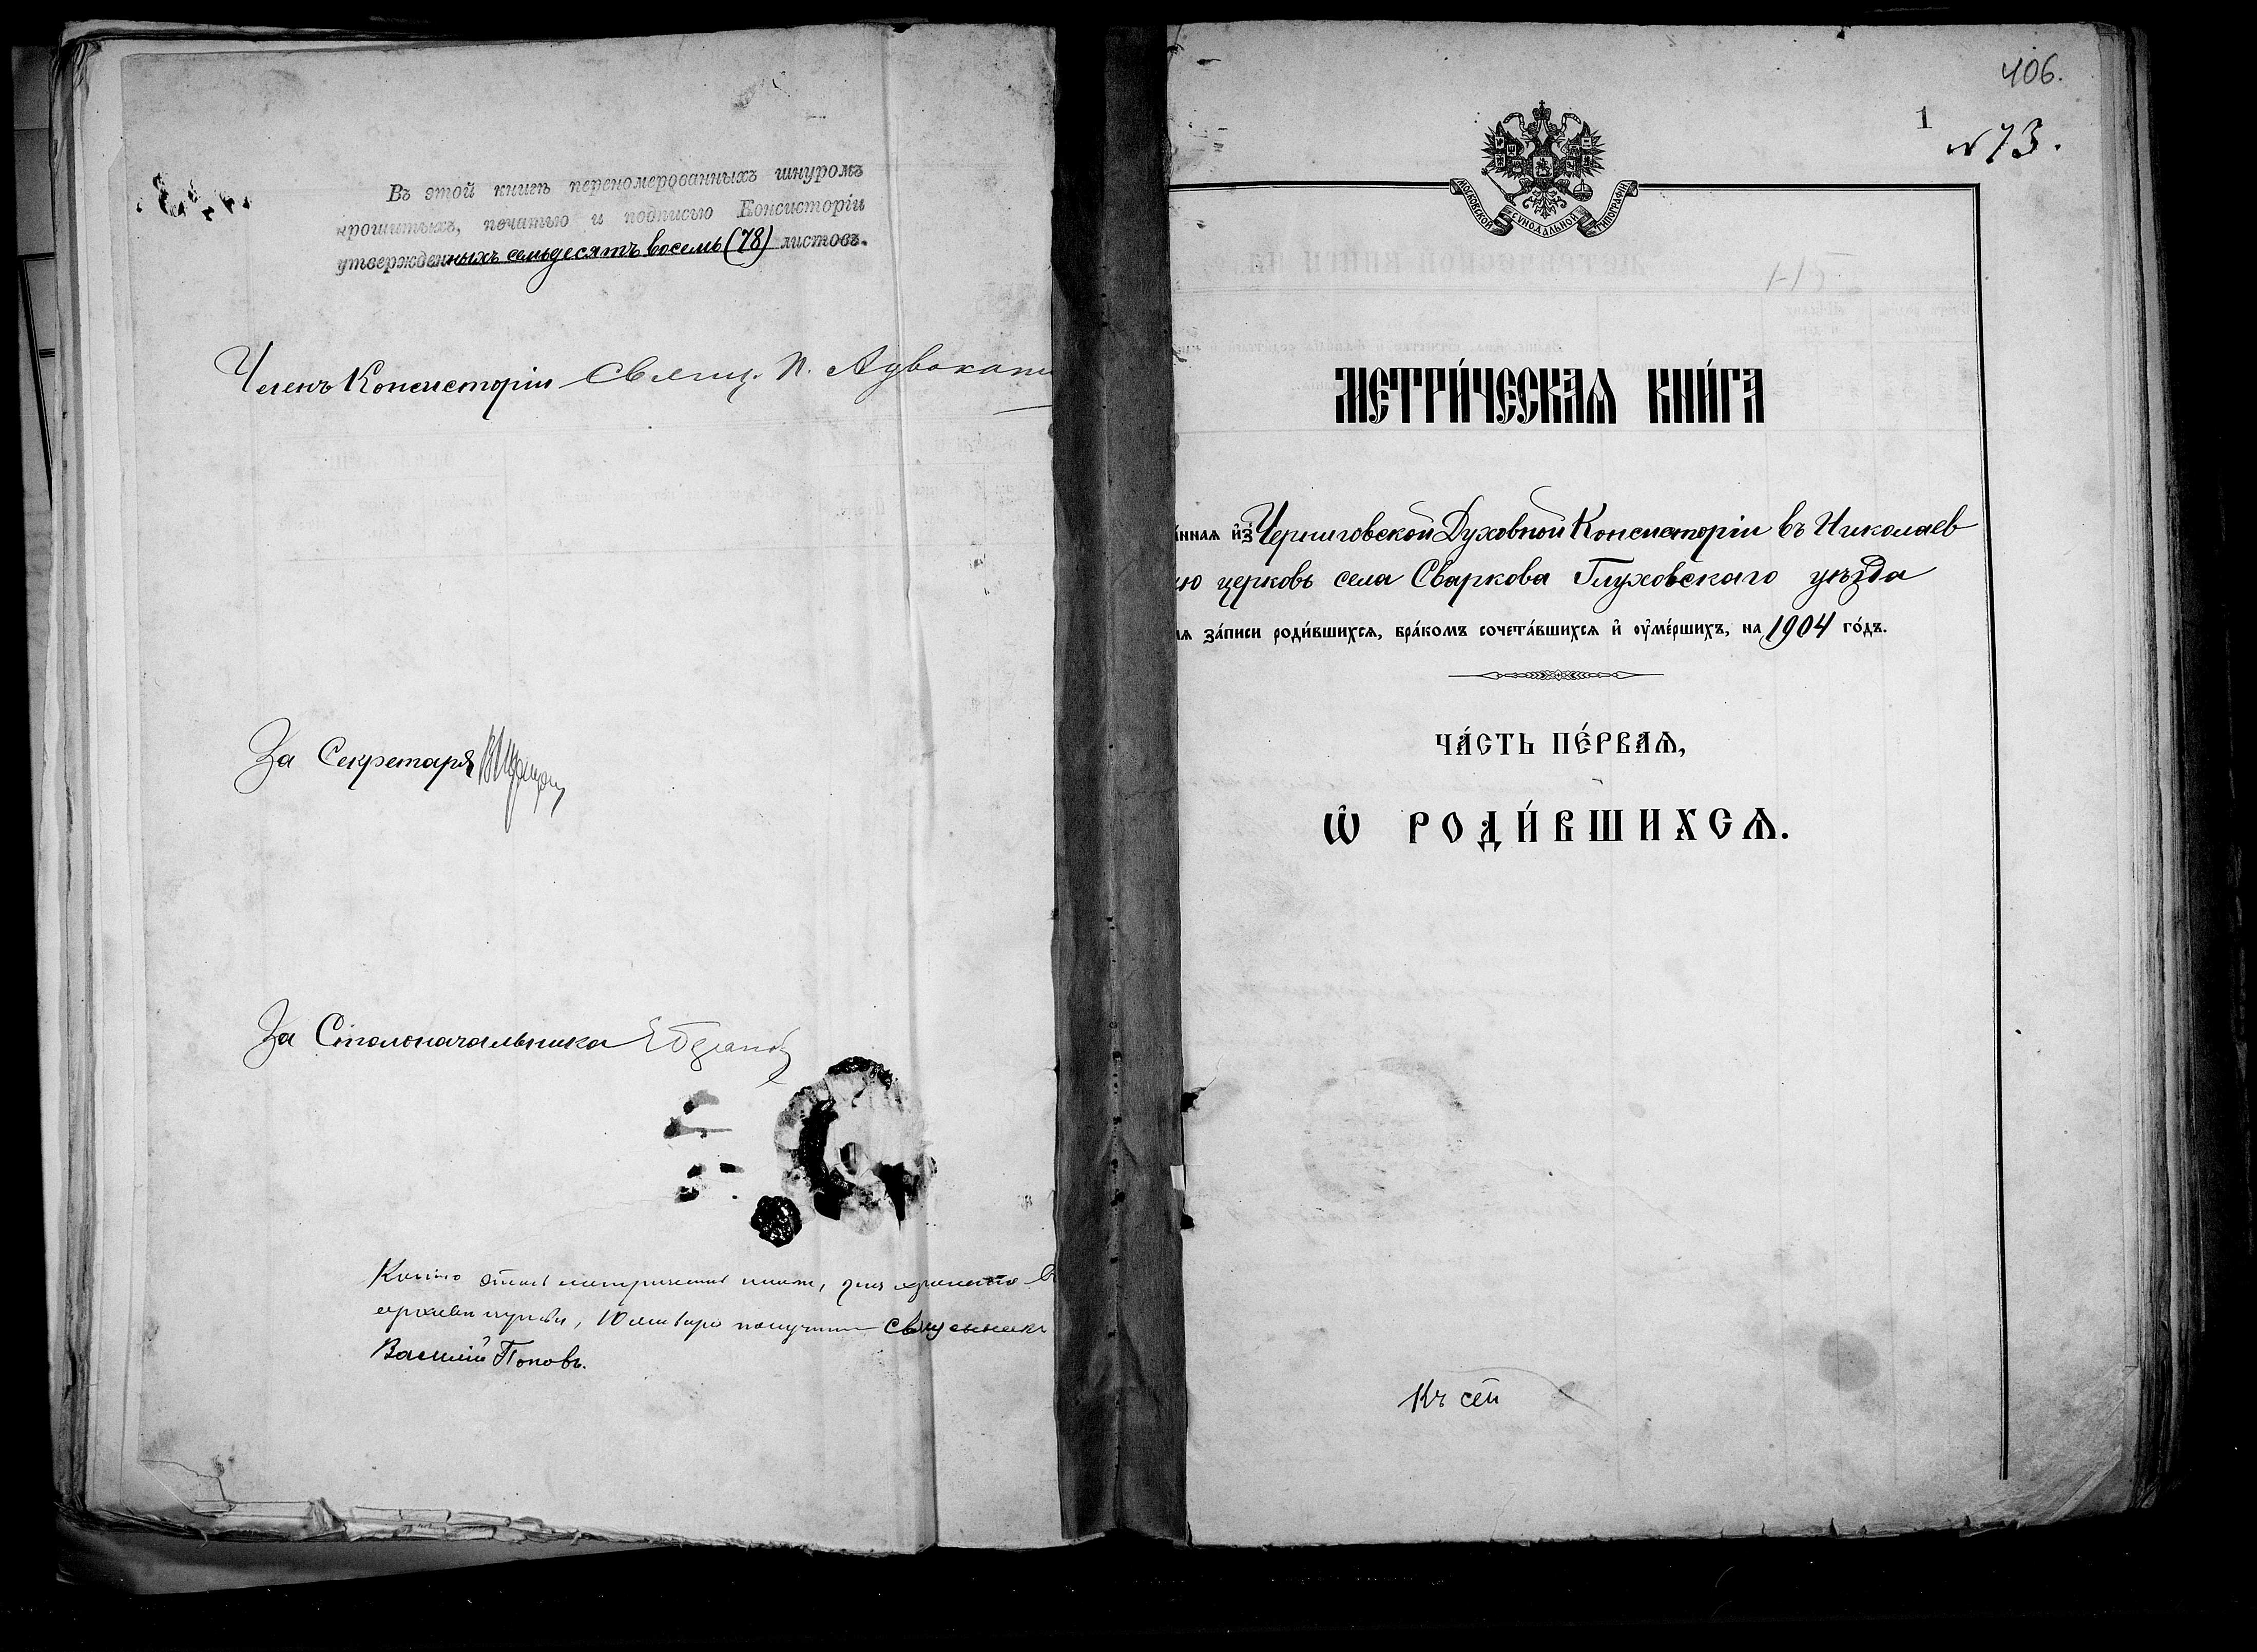 Въ этой книгѣ перенумерованныхъ шнуромъ
прошитыхъ, печатью и подписью Консисторіи
утвержденныхъ семьдесятъ восемь (78) листовъ.
Членъ Консисторіи Свящ. П. Адвокат
За Секретаря
За Столоначальника
Копію этой метрической книги, для храненія в
архивѣ церкви, получилъ священникъ
Василій Поповъ.
406.
1
№ 73.
МОСКОВСКОЙ СѴНОДАЛЬНОЙ ТИПОГРАФІИ
1-15
МЕТРИ́ЧЕСКАѦ КНИ́ГА
нная и҆з Черниговской Духовной Консисторіи въ Николаев
ю церковь села Сваркова Глуховскаго уѣзда
ѧ за́писи роди́вшихсѧ, бра́комъ сочета́вшихсѧ и҆ ᲂу҆ме́ршихъ, на 1904 го́дъ.
ЧА́СТЬ ПЕ́РВАѦ,
Ѽ РОДИ́ВШИХСѦ.
Къ сей